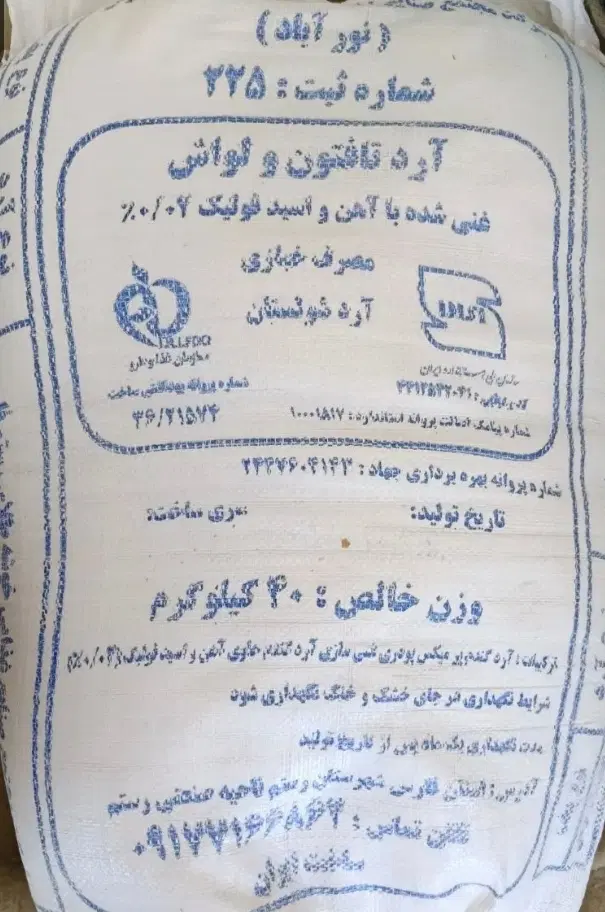 (نور آباد)
شماره ثبت : ۲۲۵
آرد تافتون و لواش
غنی شده با آهن و اسید فولیک ۰/۰۲٪
مصرف خبازی
آرد شولستان
I.R.I.FDO
سازمان ملی استاندارد ایران
معاونت غذا و دارو
شماره پروانه بهداشتی ساخت
۳۶/۲۱۵۷۴
شماره پیامک اصالت پروانه استاندارد : ۱۰۰۰۱۵۱۷
شماره پروانه بهره برداری جهاد : ۲۴۴۷۶۰۴۱۴۳
تاریخ تولید: سری ساخت:
وزن خالص : ۴۰ کیلوگرم
ترکیبات : آرد گندم، پر میکس پودری غنی سازی آرد گندم حاوی آهن و اسید فولیک
شرایط نگهداری در جای خشک و خنک نگهداری شود
مدت نگهداری یک ماه پس از تاریخ تولید
آدرس : استان فارس شهرستان رستم ناحیه صنعتی رستم
تلفن تماس : ۰۹۱۷۷۱۶۶۸۶۲
ساخت ایران